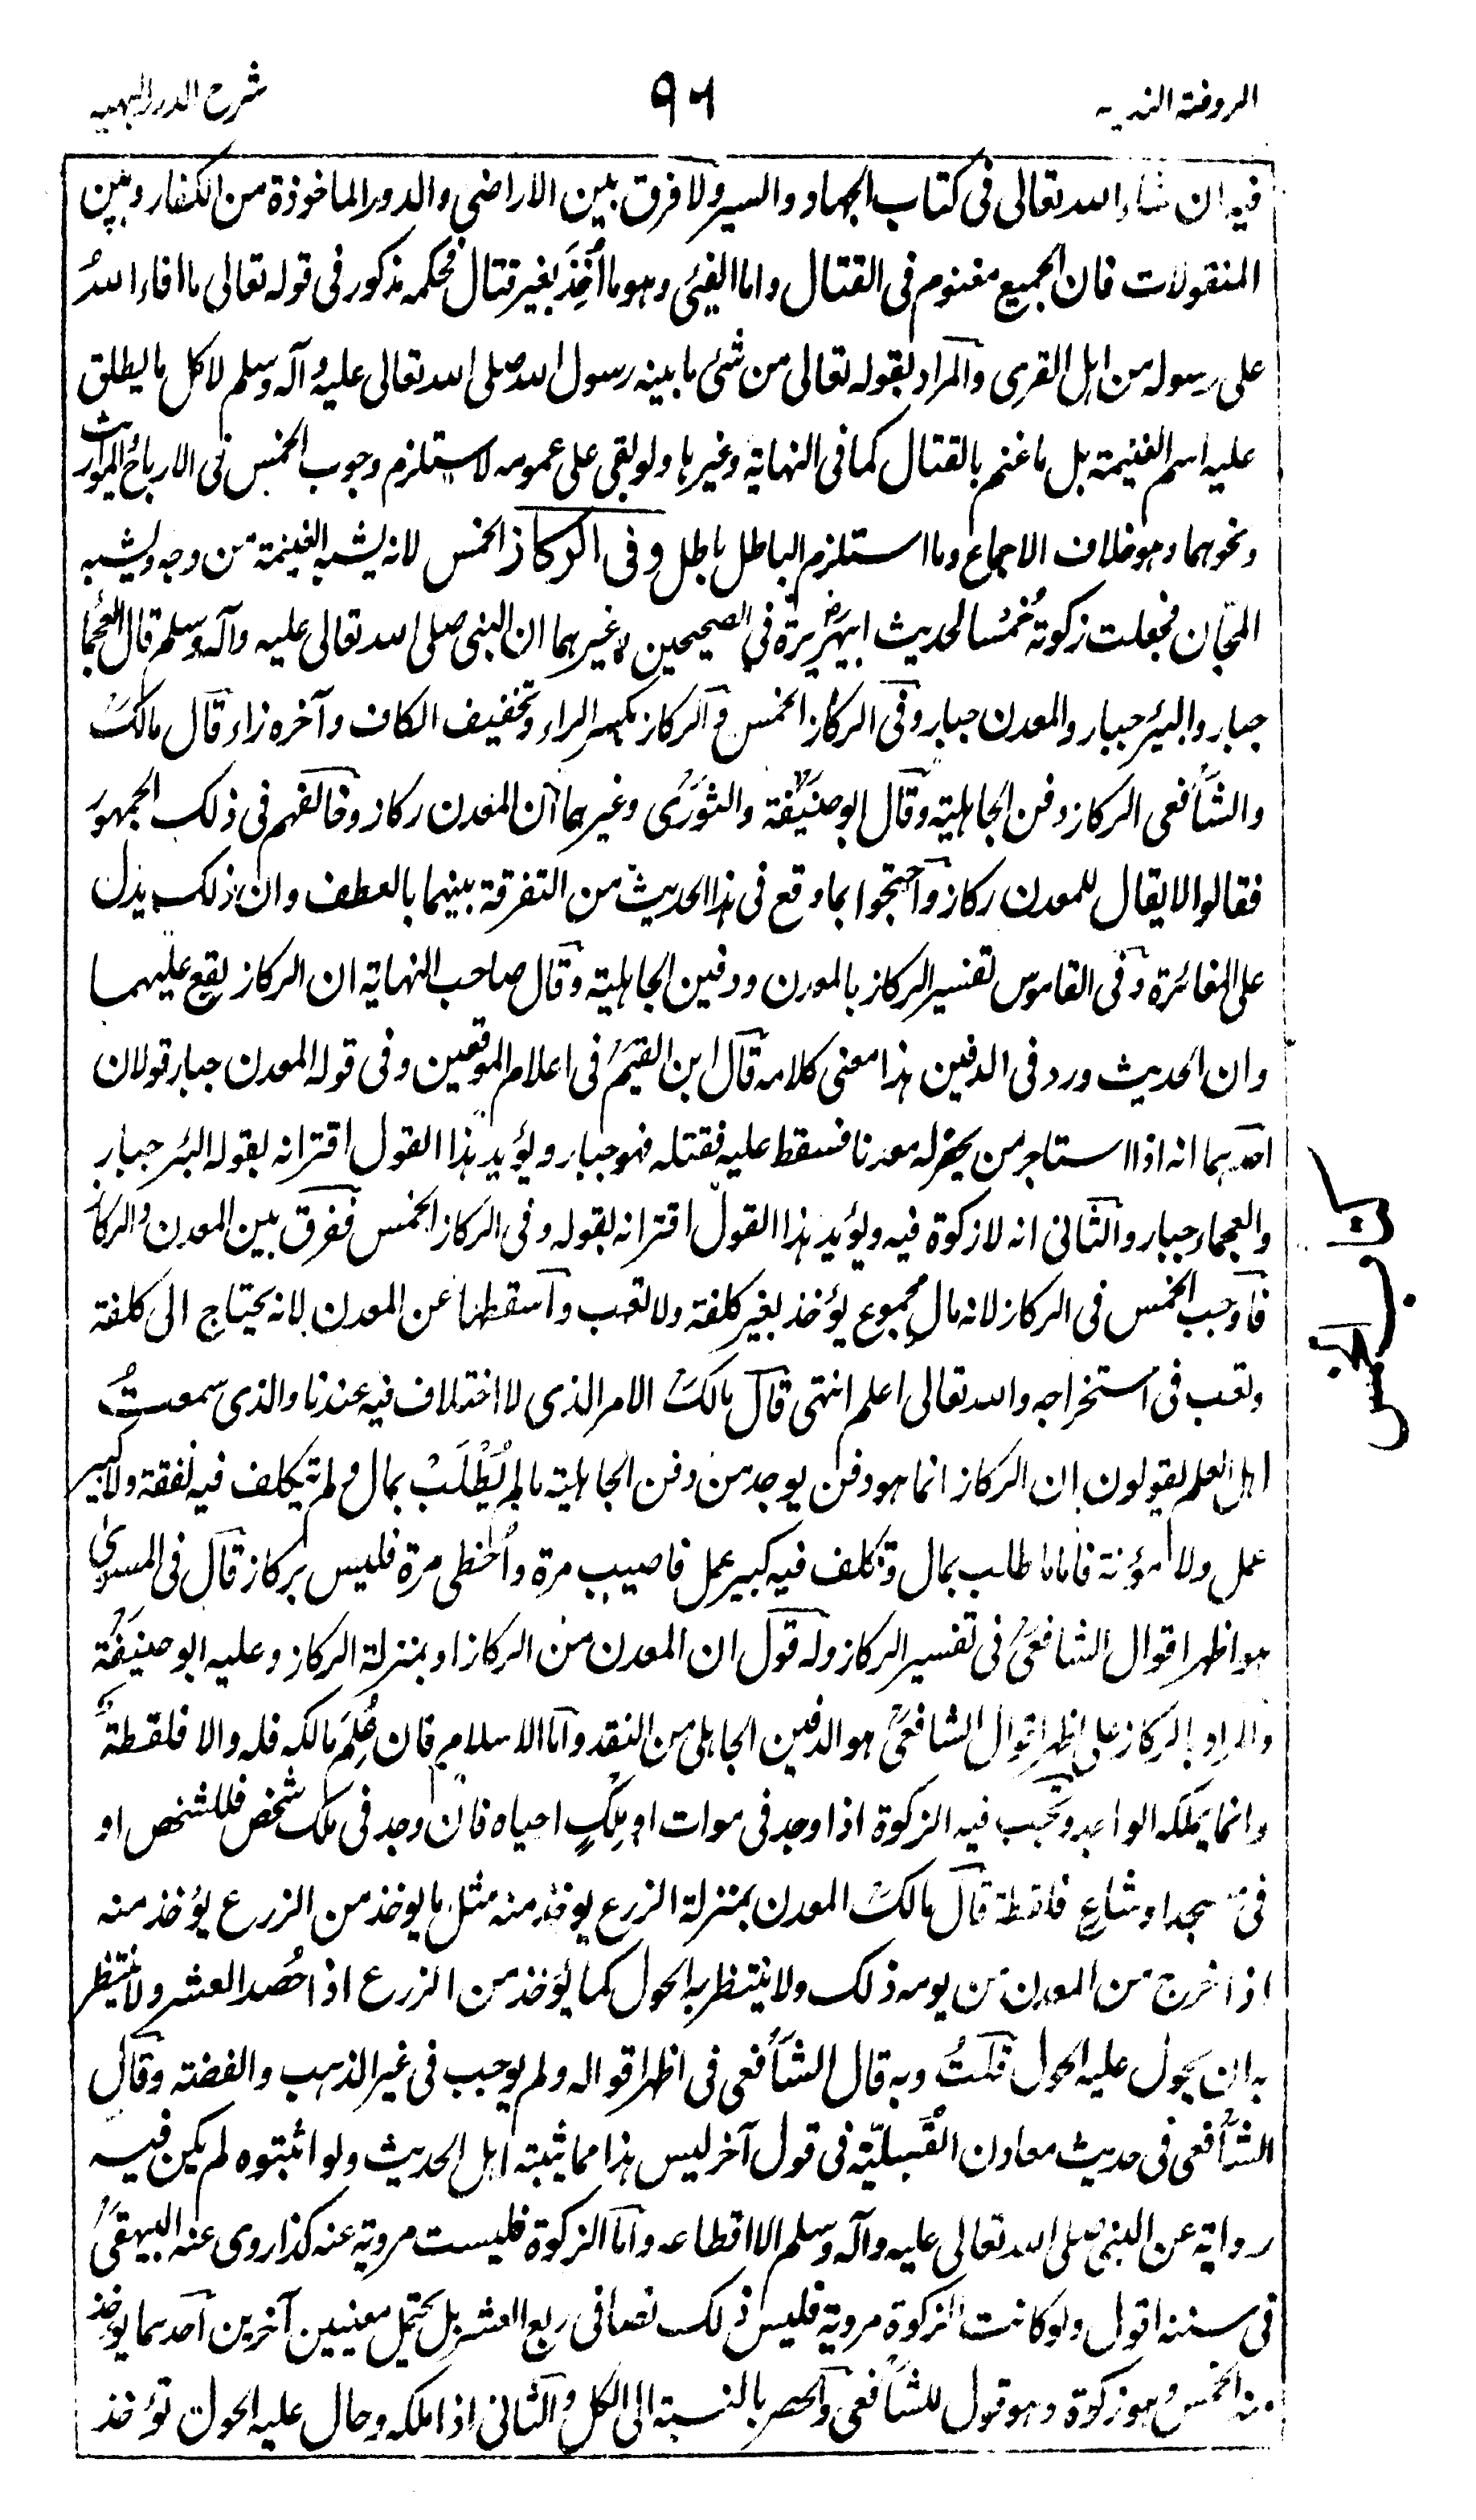 الروضة الندية
٩٦
شرح الدرر البهية
فيه ان شاء الله تعالى فى كتاب الجهاد والسير ولا فرق بين الاراضى والدور الماخوذة من الكفار وبين
المنقولات فان الجميع مغنوم فى القتال واما الفيئ وهو ما أُخِذَ بغير قتال فحكمه مذكور فى قوله تعالى ما افاء اللهُ
على رسوله من اهل القرى والمراد بقوله تعالى من شئ ما بينه رسول الله صلى الله تعالى عليه وآله وسلم لا كل ما يطلق
عليه اسم الغنيمة بل ما غنم بالقتال كما فى النهاية وغيرها ولو بقى على عمومه لاستلزم وجوب الخمس فى الارباح والمواريث
ونحوهما وهو خلاف الاجماع وما استلزم الباطل باطل وفى الركاز الخمس لانه يشبه الغنيمة من وجه ويشبه
المجان فجعلت زكوته خُمُسا لحديث ابيهريرة فى الصحيحين وغيرهما ان النبى صلى الله تعالى عليه وآله وسلم قال العجما
جبار والبئر جبار والمعدن جبار وفى الركاز الخمس والركاز بكسر الراء وتخفيف الكاف وآخره زاء قال مالك
والشافعى الركاز دفن الجاهلية وقال ابو حنيفة والثورى وغيرهما ان المعدن ركاز وخالفهم فى ذلك الجمهور
فقالوا لا يقال للمعدن ركاز واحتجوا بما وقع فى هذا الحديث من التفرقة بينهما بالعطف وان ذلك يدل
على المغائرة وفى القاموس تفسير الركاز بالمعدن ودفين الجاهلية وقال صاحب النهاية ان الركاز يقع عليهما
وان الحديث ورد فى الدفين هذا معنى كلامه قال ابن القيم فى اعلام الموقعين وفى قوله المعدن جبار قولان
احدهما انه اذا استاجر من يحفر له معدنا فسقط عليه فقتله فهو جبار ويؤيد هذا القول اقترانه بقوله البئر جبار
والعجماء جبار والثانى انه لا زكوة فيه ويؤيد هذا القول اقترانه بقوله وفى الركاز الخمس ففرق بين المعدن والركاز
فاوجب الخمس فى الركاز لانه مال مجموع يؤخذ بغير كلفة ولا تعب واسقطها عن المعدن لانه يحتاج الى كلفة
وتعب فى استخراجه والله تعالى اعلم انتهى قال مالك الامر الذى لا اختلاف فيه عندنا والذى سمعتُ
اهل العلم يقولون ان الركاز انما هو دفن يوجد من دفن الجاهلية ما لم يُطْلَبْ بمال ولم يتكلف فيه نفقة ولا كبير
عمل ولا مؤنة فاما ما طلب بمال وتكلف فيه كبير عمل فاصيب مرة واُخطى مرة فليس بركاز قال فى المسوى
هو اظهر اقوال الشافعى فى تفسير الركاز وله قول ان المعدن من الركاز او بمنزلة الركاز وعليه ابو حنيفة
والمراد بالركاز على اظهر اقوال الشافعى هو الدفين الجاهلى من النقد واما الاسلام فان عُلِمَ مالكه فله والا فلقطةٌ
وانما يملكه الواجد وتجب فيه الزكوة اذا وجد فى موات او مِلكٍ احياه فان وجد فى ملك شخص فللشخص او
فى مسجد او شارع فلقطة قال مالك المعدن بمنزلة الزرع يوخذ منه مثل ما يوخذ من الزرع يؤخذ منه
اذا خرج من المعدن من يومه ذلك ولا ينتظر به الحول كما يؤخذ من الزرع اذا حُصد العشر ولا ينتظر
به ان يحول عليه الحول قلتُ وبه قال الشافعى فى اظهر اقواله ولم يوجب فى غير الذهب والفضة وقال
الشافعى فى حديث معادن القَبَليّة فى قول آخر ليس هذا مما يثبته اهل الحديث ولو اثبتوه لم يكن فيه
رواية عن النبى صلى الله تعالى عليه وآله وسلم الا اقطاعه واما الزكوة فليست مروية عنه كذا روى عنه البيهقى
فى سننه اقول ولو كانت الزكوة مروية فليس ذلك نصا فى ربع العشر بل يحتمل معنيين آخرين احدهما يوخذ
منه الخمس وهو زكوة وهو قول للشافعى والحصر بالنسبة الى الكل والثانى اذا ملكه وحال عليه الحول تؤخذ